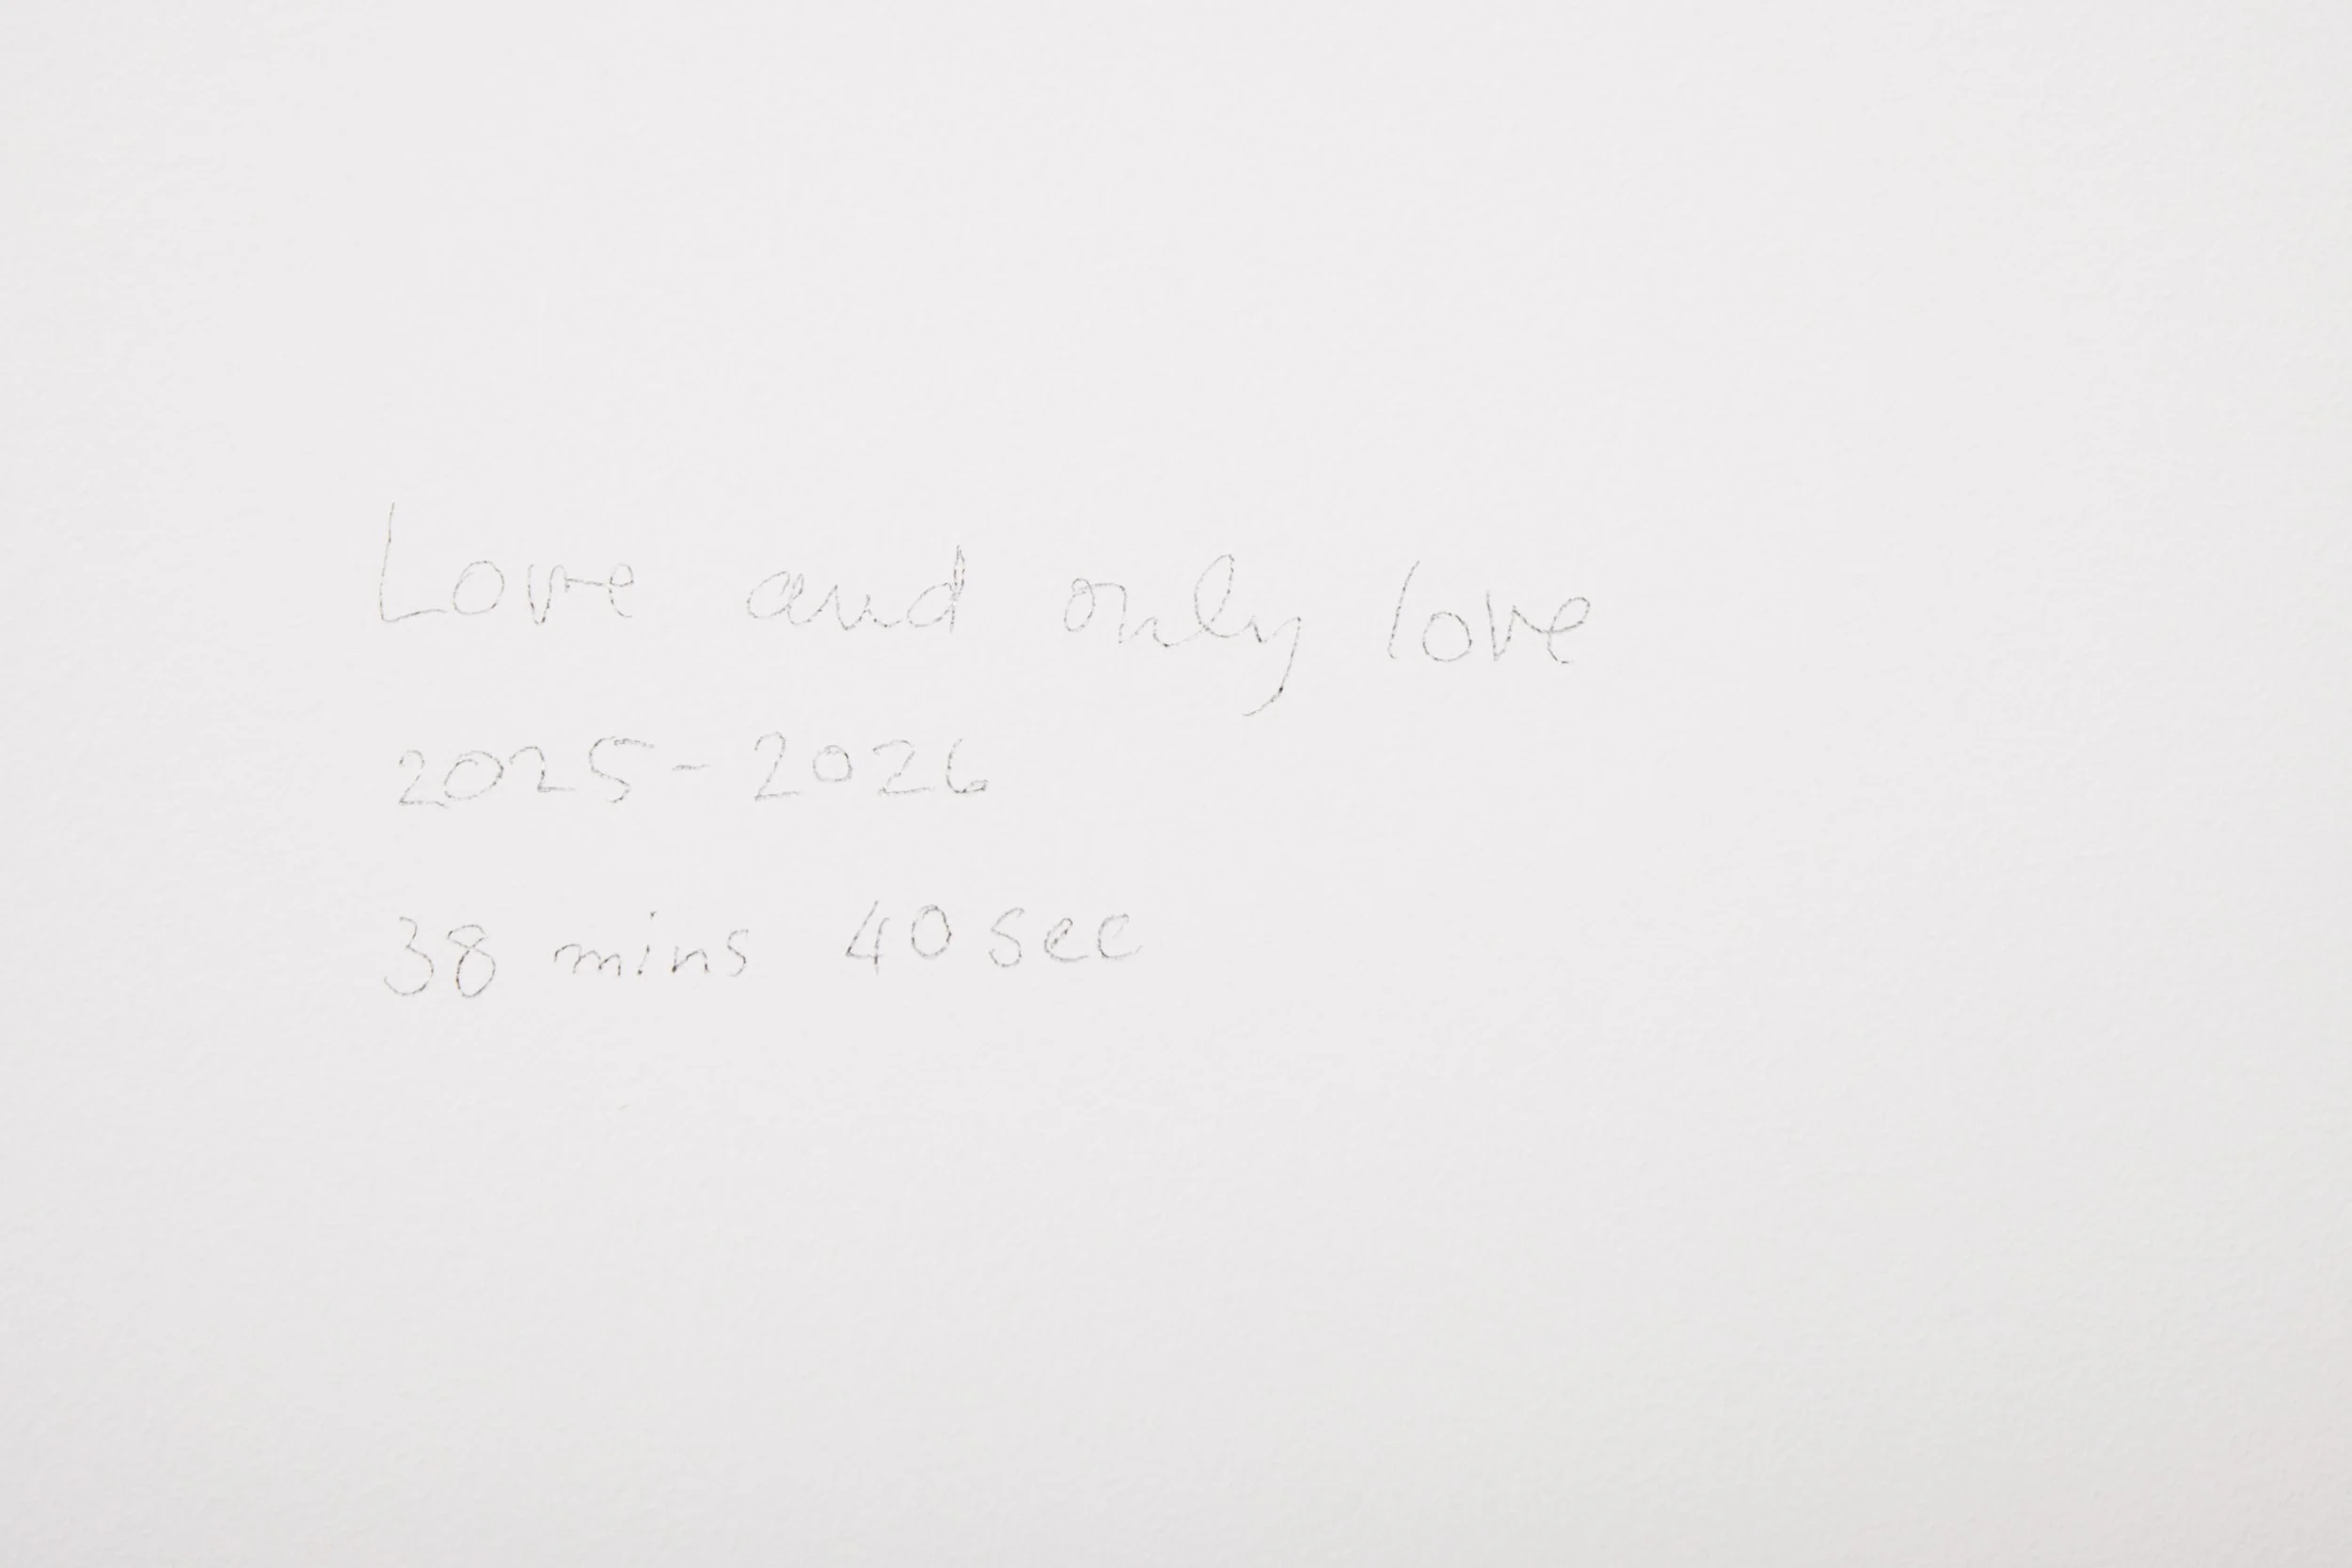 Love and only love
2025-2026
38 mins 40 sec